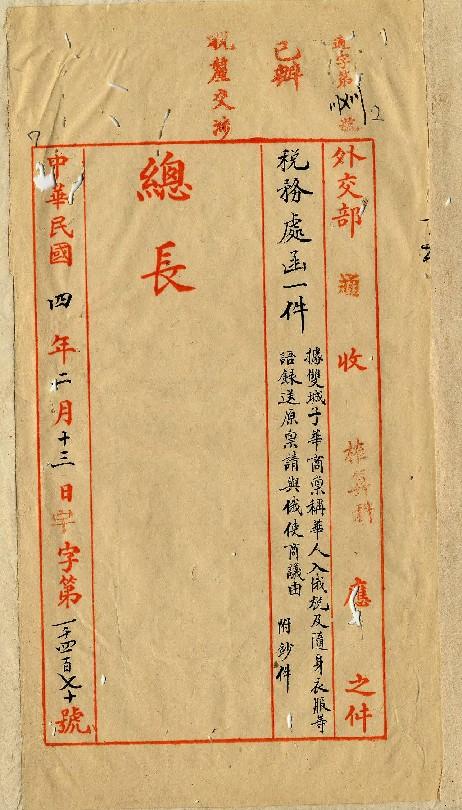 通字第 號
已辦
稅釐交涉
外交部 通 收 榷算科 應 之件
稅務處函一件
據雙城子華商稟稱華人入俄稅及隨身衣服等
語錄送原稟請與俄使商議由 附鈔件
總長
中華民國四年二月十三日 字第一千四百 十號